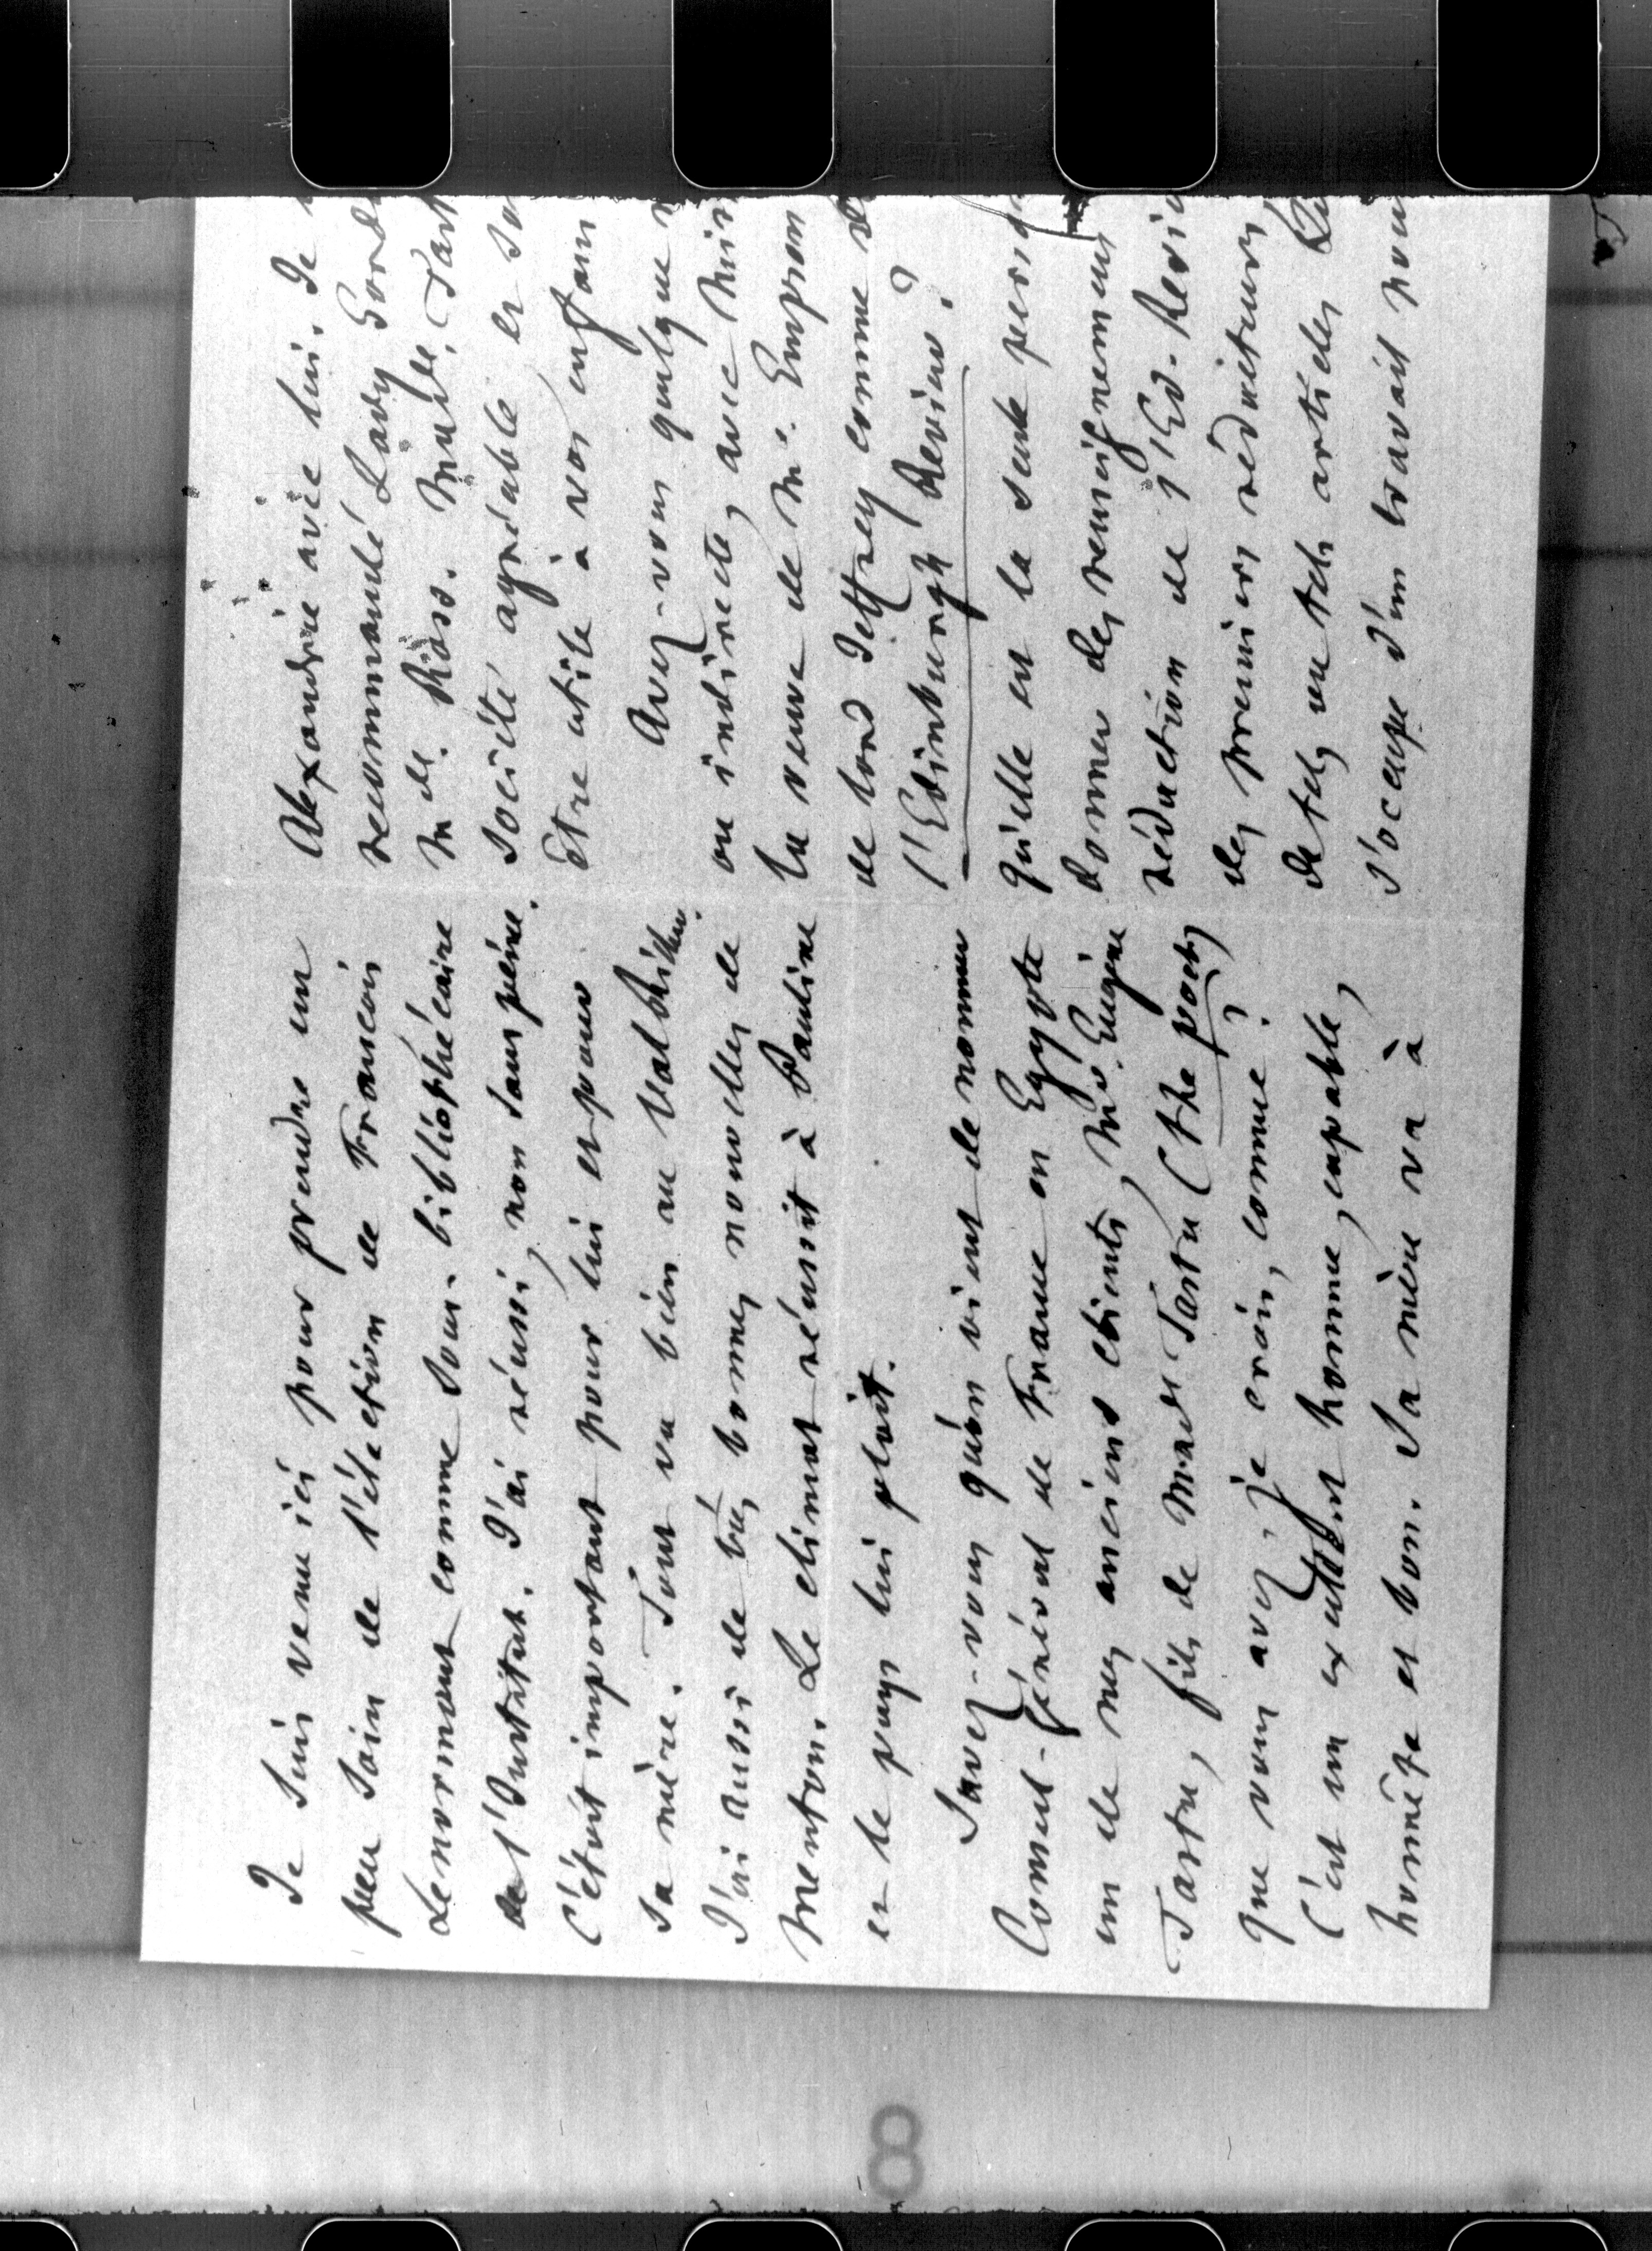 Je suis venu ici pour prendre un
peu soin de l'élection de François
Lenormant comme sous-bibliothécaire
de l'Institut. J'ai réussi, non sans peine.
C'étoit important pour lui et pour
sa mère. Tout va bien au Val Richer.
J'ai aussi de très bonnes nouvelles de
Menton. Le climat réussit à Pauline
et le pays lui plaît.
Savez-vous qu'on vient de nommer
Consul-général de France en Egypte
un de mes anciens clients, Mr. Eugène
Tastu, fils de Made Tastu (the poet)
que vous avez, je crois, connue?
C'est un excellent homme, capable,
honnête et bon. Sa mère va à
Alexandrie avec lui. Je
recommandé Lady Gord
Mde. Ross. Made. Tast
société agréable et
être utile à vos enfan
Avez-vous quelque
ou indirecte, avec
la veuve de Mr. Empson
de lord Jeffrey comme
l'Edinburgh Review?
qu'elle est la seule pers
donner des renseignemens
rédaction de l'Ed. Revi
des premiers rédacteurs
de tels ou tels articles
s'occupe d'un travail
8